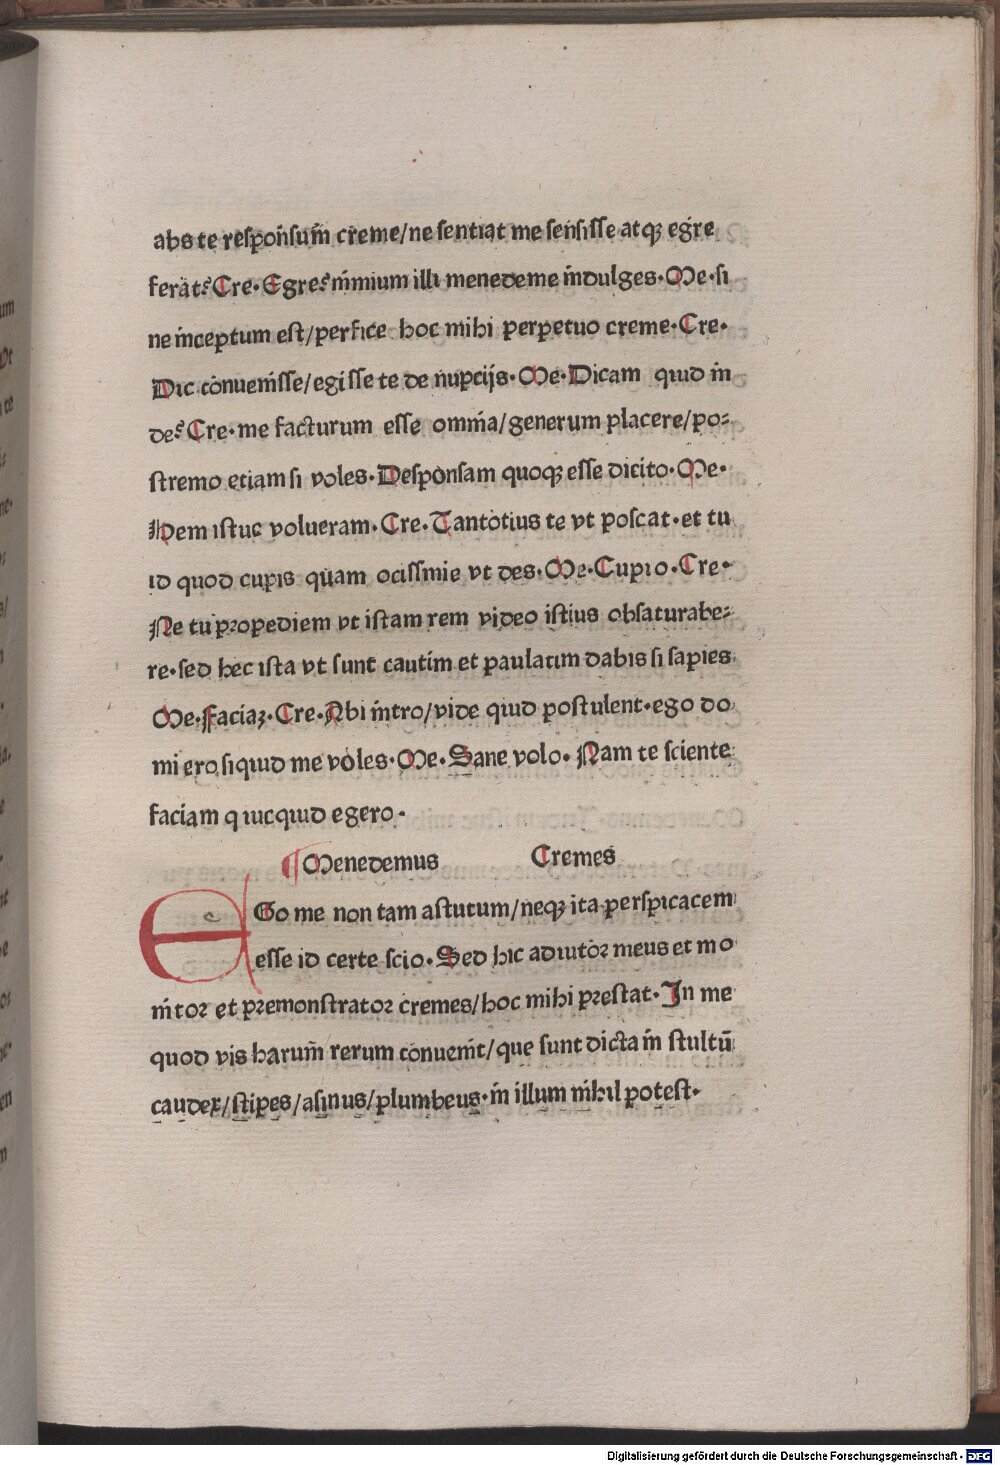 abs te responsum̄ creme/ne sentiat me sensisse atqꝫ egre
ferat? Cre· Egre? nimium illi menedeme indulges· Me· si
ne inceptum est/perfice hoc mihi perpetuo creme· Cre·
Dic conuenisse/egisse te de nupcijs· Me· Dicam quid in
de? Cre· me facturum esse omnia/generum placere/po⸗
stremo etiam si voles· Desponsam quoqꝫ esse dicito· Me·
Hem istuc volueram· Cre· Tantotius te vt poscat· et tu
id quod cupis quam ocissime vt des· Me· Cupio· Cre·
Ne tu propediem vt istam rem video istius obsaturabe⸗
re· sed hec ista vt sunt cautim et paulatim dabis si sapies
Me· Faciaꝫ· Cre· Abi intro/vide quid postulent· ego do
mi ero si quid me voles· Me· Sane volo· Nam te sciente
faciam quicquid egero·
¶ Menedemus Cremes
EGo me non tam astutum/neqꝫ ita perspicacem
esse id certe scio· Sed hic adiutor meus et mo
nitor et premonstrator cremes/hoc mihi prestat· In me
quod vis harum̄ rerum conuenit/que sunt dicta in stultū
caudex/stipes/asinus/plumbeus· in illum nihil potest·
Digitalisierung gefördert durch die Deutsche Forschungsgemeinschaft - DFG